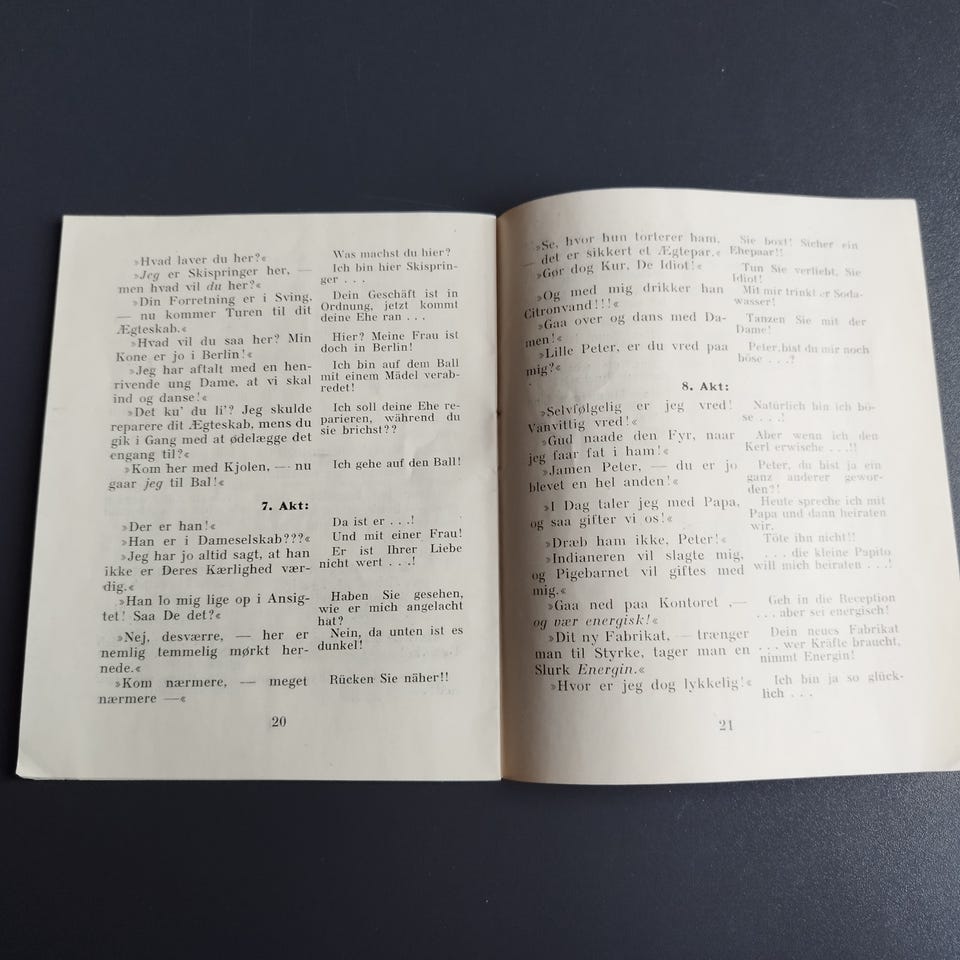 »Hvad laver du her?«
»Jeg er Skispringer her, —
men hvad vil du her?«
»Din Forretning er i Sving,
— nu kommer Turen til dit
Ægteskab.«
»Hvad vil du saa her? Min
Kone er jo i Berlin!«
»Jeg har aftalt med en hen-
rivende ung Dame, at vi skal
ind og danse!«
»Det ku' du li'? Jeg skulde
reparere dit Ægteskab, mens du
gik i Gang med at ødelægge det
engang til?«
»Kom her med Kjolen, — nu
gaar jeg til Bal!«
Was machst du hier?
Ich bin hier Skisprin-
ger . . .
Dein Geschäft ist in
Ordnung, jetzt kommt
deine Ehe ran . . .
Hier? Meine Frau ist
doch in Berlin!
Ich bin auf dem Ball
mit einem Mädel verab-
redet!
Ich soll deine Ehe re-
parieren, während du
sie brichst??
Ich gehe auf den Ball!
7. Akt:
»Der er han!«
»Han er i Dameselskab???«
»Jeg har jo altid sagt, at han
ikke er Deres Kærlighed vær-
dig.«
»Han lo mig lige op i Ansig-
tet! Saa De det?«
»Nej, desværre, — her er
nemlig temmelig mørkt her-
nede.«
»Kom nærmere, — meget
nærmere —«
Da ist er . . .!
Und mit einer Frau!
Er ist Ihrer Liebe
nicht wert . . .!
Haben Sie gesehen,
wie er mich angelacht
hat?
Nein, da unten ist es
dunkel!
Rücken Sie näher!!
20
»Se, hvor hun torterer ham,
— det er sikkert et Ægtepar.«
»Gør dog Kur, De Idiot!«
»Og med mig drikker han
Citronvand!!!«
»Gaa over og dans med Da-
men!«
»Lille Peter, er du vred paa
mig?«
Sie boxt! Sicher ein
Ehepaar!!
Tun Sie verliebt, Sie
Idiot!
Mit mir trinkt er Soda-
wasser!
Tanzen Sie mit der
Dame!
Peter, bist du mir noch
böse . . .?
8. Akt:
»Selvfølgelig er jeg vred!
Vanvittig vred!«
»Gud naade den Fyr, naar
jeg faar fat i ham!«
»Jamen Peter, — du er jo
blevet en hel anden!«
»I Dag taler jeg med Papa,
og saa gifter vi os!«
»Dræb ham ikke, Peter!«
»Indianeren vil slagte mig,
og Pigebarnet vil giftes med
mig.«
»Gaa ned paa Kontoret ,—
og vær energisk!«
»Dit ny Fabrikat, — trænger
man til Styrke, tager man en
Slurk Energin.«
»Hvor er jeg dog lykkelig!«
Natürlich bin ich bö-
se . . .!
Aber wenn ich den
Kerl erwische . . .!!
Peter, du bist ja ein
ganz anderer gewor-
den?!
Heute spreche ich mit
Papa und dann heiraten
wir.
Töte ihn nicht!!
. . . die kleine Papito
will mich heiraten . . .!
Geh in die Reception
. . . aber sei energisch!
Dein neues Fabrikat
. . . wer Kräfte braucht,
nimmt Energin!
Ich bin ja so glück-
lich . . .
21